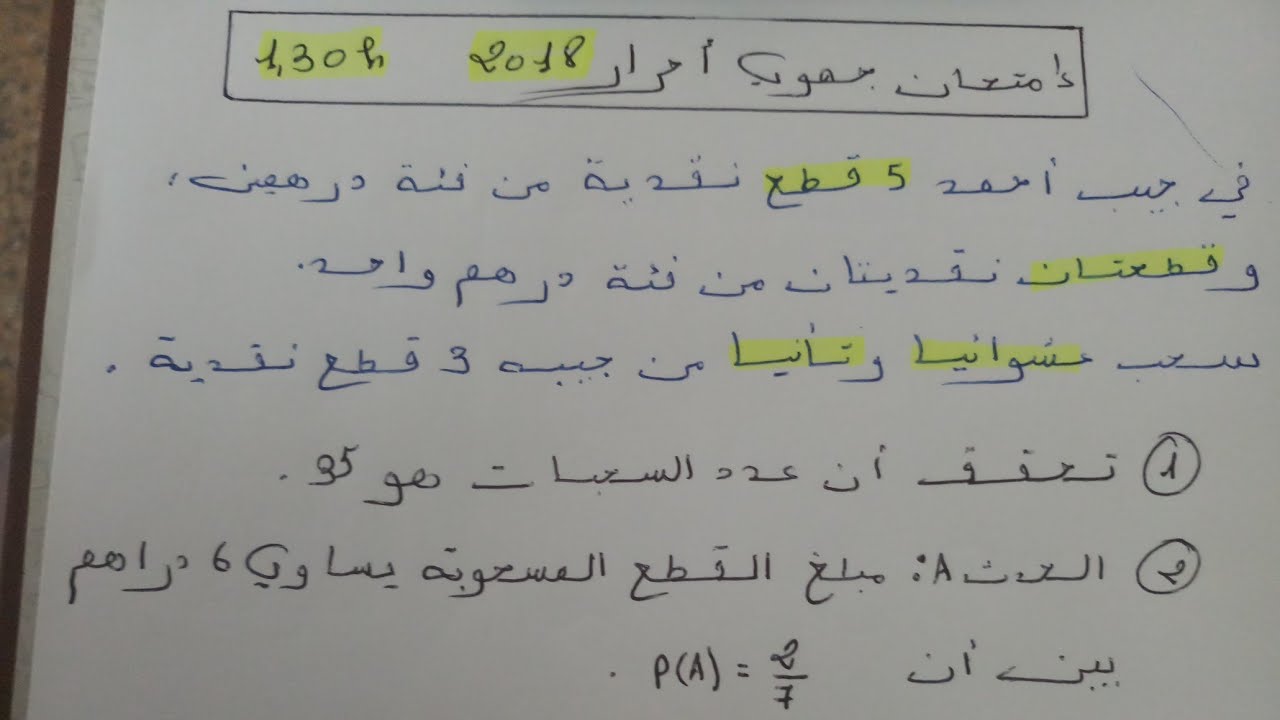 امتحان جهوي أحرار 2018 1,30h
في جيب أحمد 5 قطع نقدية من فئة درهمين،
وقطعتان نقديتان من فئة درهم واحد.
سحب عشوائيا وتأنيا من جيبه 3 قطع نقدية .
① تحقق أن عدد السحبات هو 35 .
② الحدث A: مبلغ القطع المسحوبة يساوي 6 دراهم
بين أن P(A) = 2/7 .